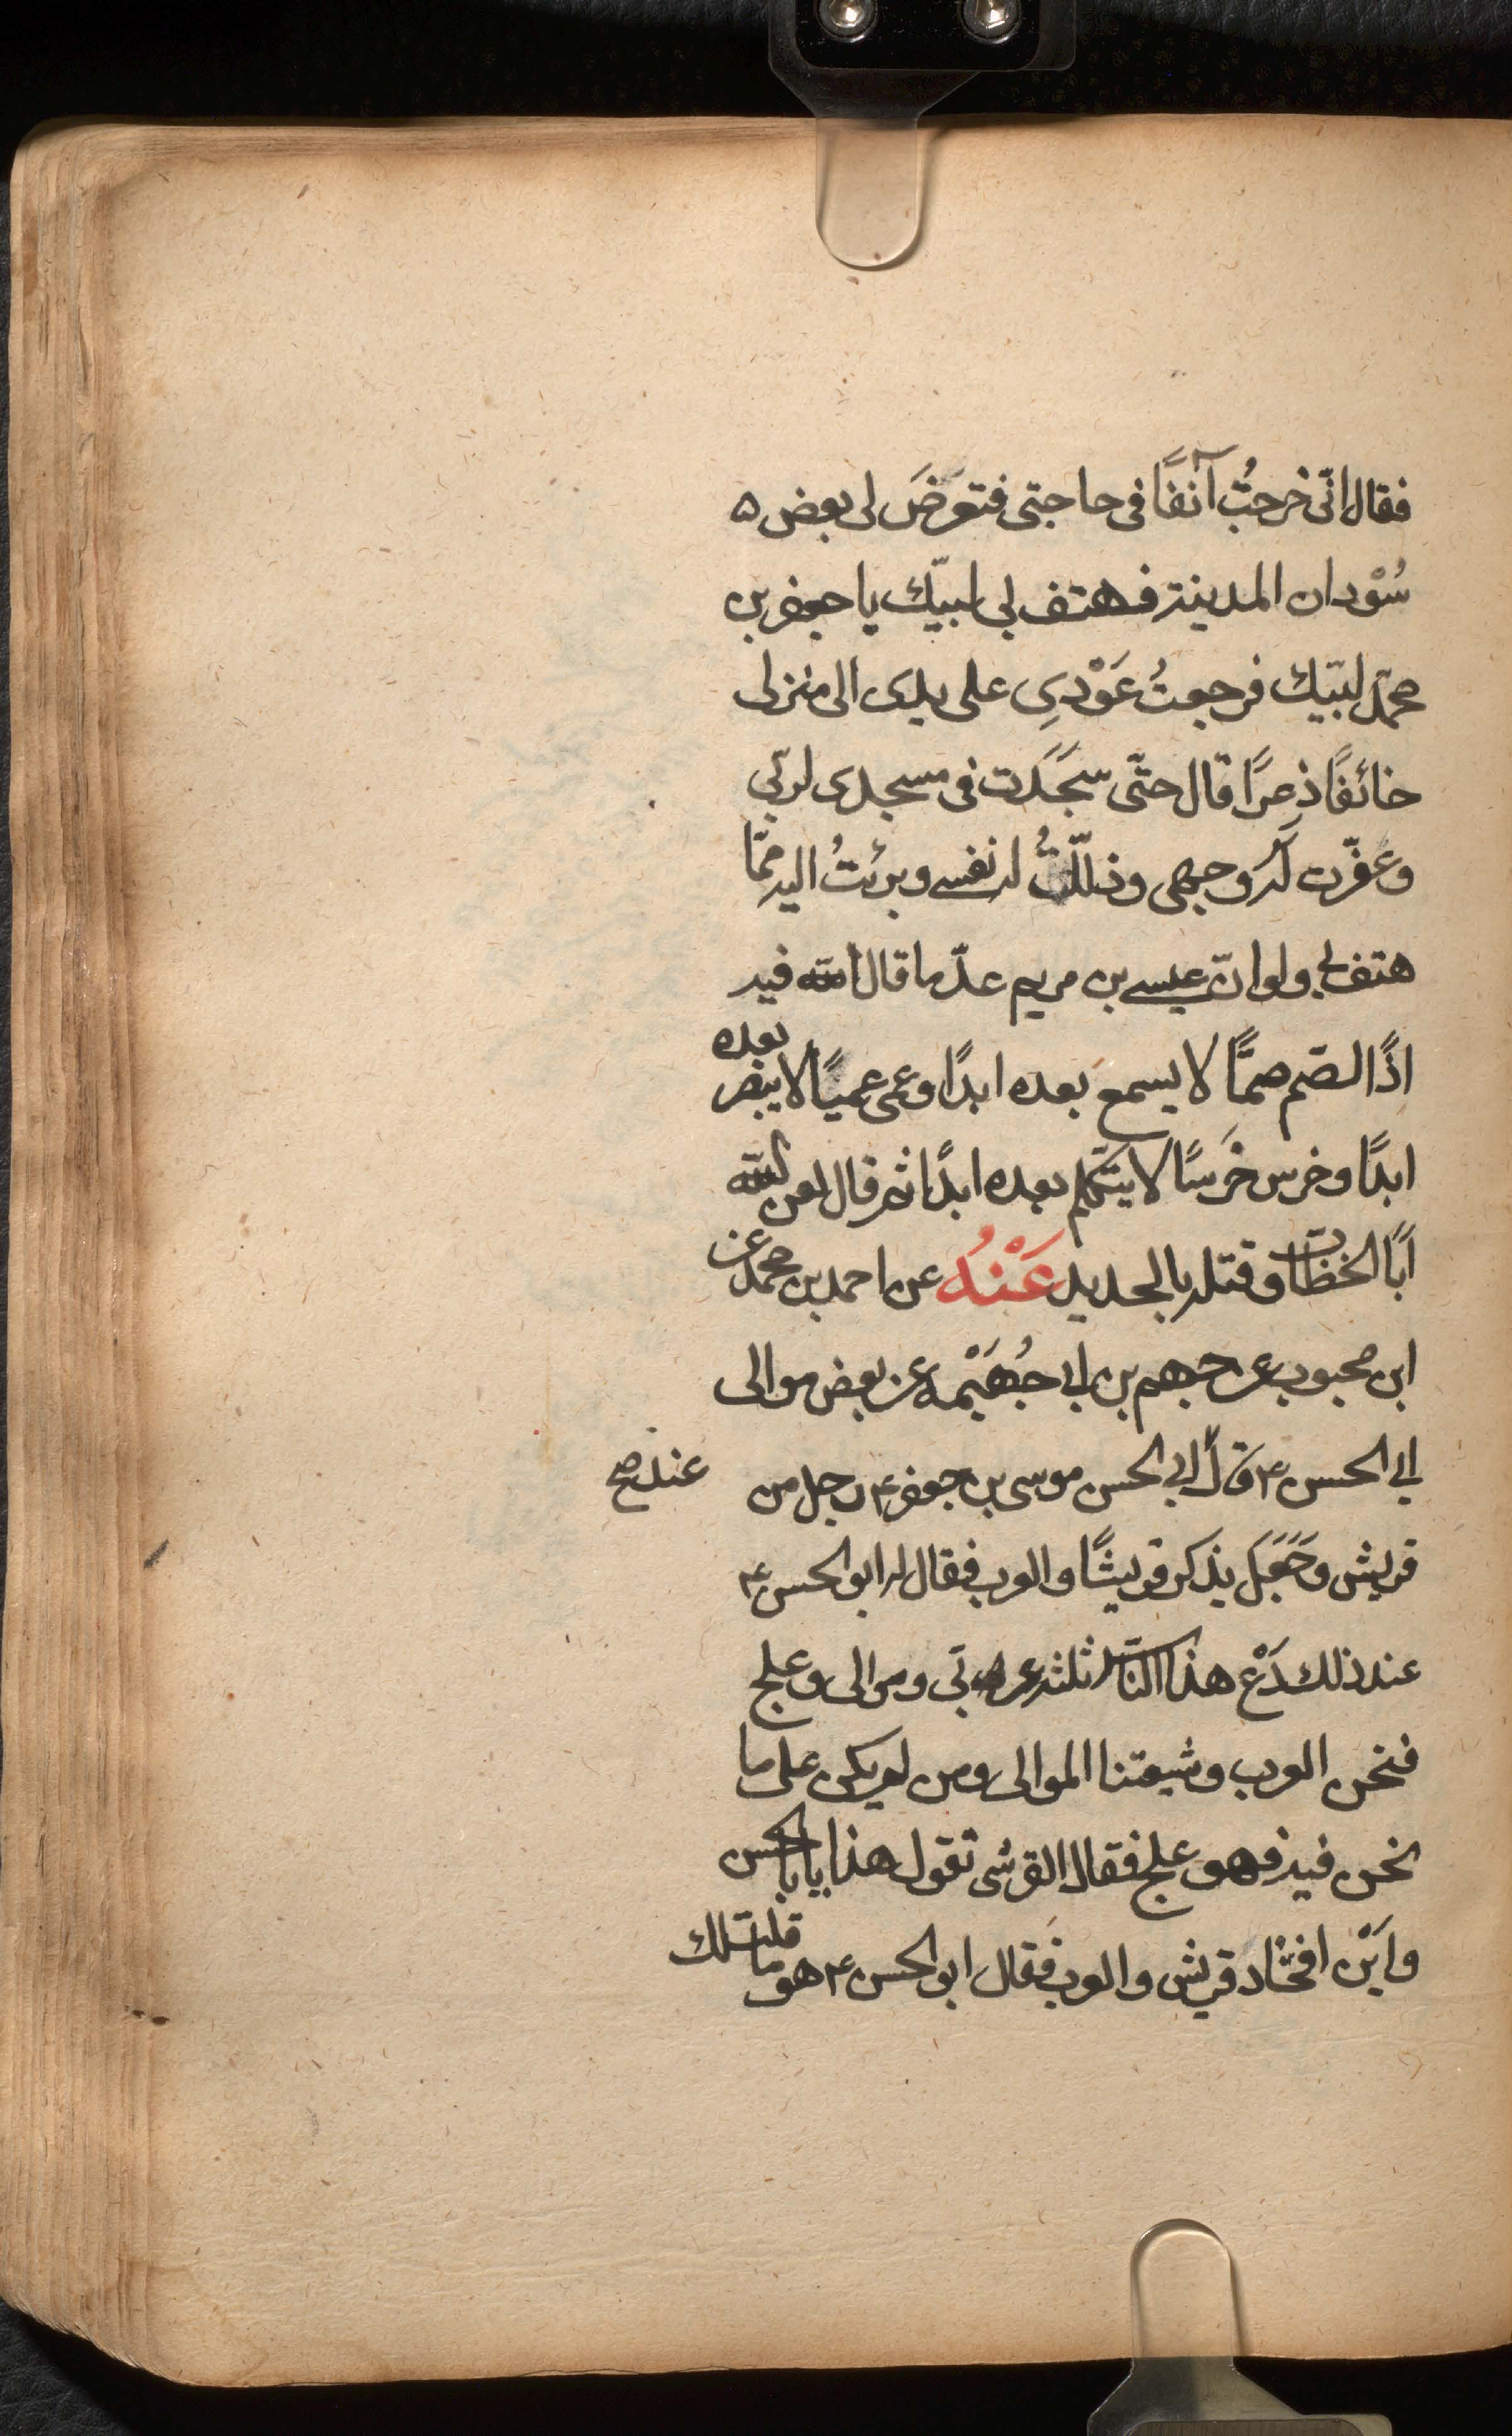 فقال انّى خرجتُ آنفًا فى حاجتى فتعرّضَ لى بعض ه
سُوْدان المدينة فهتف بى لبيّك يا جعفر بن
محمّد لبيّك فرجعتُ عَوْدِى على بدى الى منزلى
خائفًا ذعرًا قال حتّى سجَدَت فى مسجدى لربّى
وعفّرت لَهُ وجهى وذللّتُ له نفسى وبرئتُ اليه ممّا
هتف بى ولو انّ عيسى بن مريم عدّ ما قال الله فيه
اذًا لصّم صمًّا لا يسمع بعده ابدًا وعمى عميًا لا يبصر بعده
ابدًا وخرس خَرسًا لا يتكلم بعده ابدًا ثم قال لعن الله
اَبَا الخطاب وقتله بالحديد عَنْهُ عن احمد بن محمد عن
ابن محبوب عن جهم بن ابى جُهَيْمه عن بعض موالى
ابى الحسن ٤ قال لابى الحسن موسى بن جعفر ٤ رجل من
عند صح
قريش وجَعَل يذكر قريشًا والعرب فقال له ابو الحسن ٤
عند ذلك دَعْ هذا الناس ثلثه عربى ومولى وعلج
فنحن العرب وشيعتنا الموالى ومن لم يكن على ما
نحن فيه فهو علج فقال القرشى تقول هذا يا ابا الحسن
واَيْن افخاذ قريش والعرب فقال ابو الحسن ٤ هو ما قلت لك